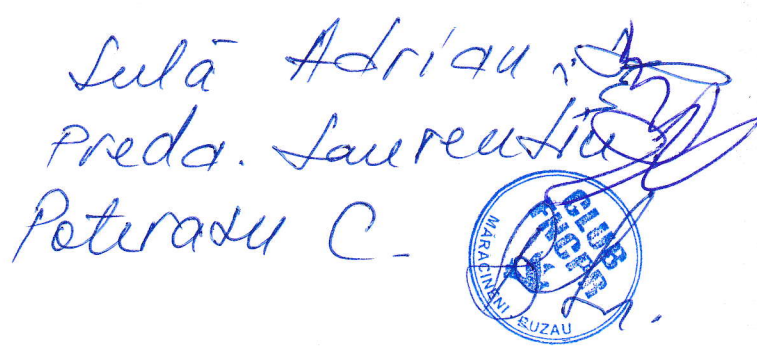 Sulă Adrian
Preda. Laurentiu
Poterasu C.
CLUB
FNCPR
MARACINENI BUZAU